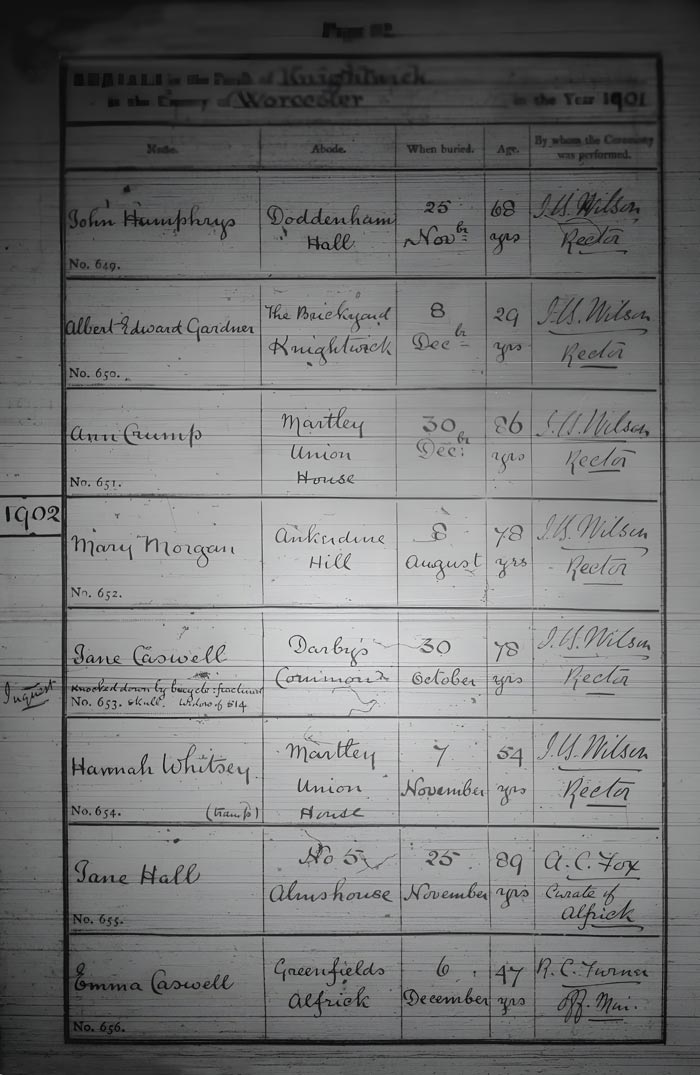 Page 82.
BURIALS in the Parish of Knightwick
in the County of Worcester in the Year 1901
Name. Abode. When buried. Age. By whom the Ceremony was performed.
John Humphrys
No. 649.
Doddenham
Hall
25
Novbr
68
yrs
J.H. Wilson
Rector
Albert Edward Gardner
No. 650.
The Brickyard
Knightwick
8
Decbr
29
yrs
J.H. Wilson
Rector
Ann Crump
No. 651.
Martley
Union
House
30
Decbr
86
yrs
J.H. Wilson
Rector
1902
Mary Morgan
No. 652.
Ankerdine
Hill
8
August
78
yrs
J.H. Wilson
Rector
Inquest
Jane Caswell
Knocked down by bicycle-fractured
No. 653. skull. Widow of 514
Darby's
Common
30
October
78
yrs
J.H. Wilson
Rector
Hannah Whitsey
No. 654. (tramp)
Martley
Union
House
7
November
54
yrs
J.H. Wilson
Rector
Jane Hall
No. 655.
No 5
Almshouse
25
November
89
yrs
A.C. Fox
Curate of
Alfrick
Emma Caswell
No. 656.
Greenfields
Alfrick
6
December
47
yrs
R.C. Turner
Off. Min.